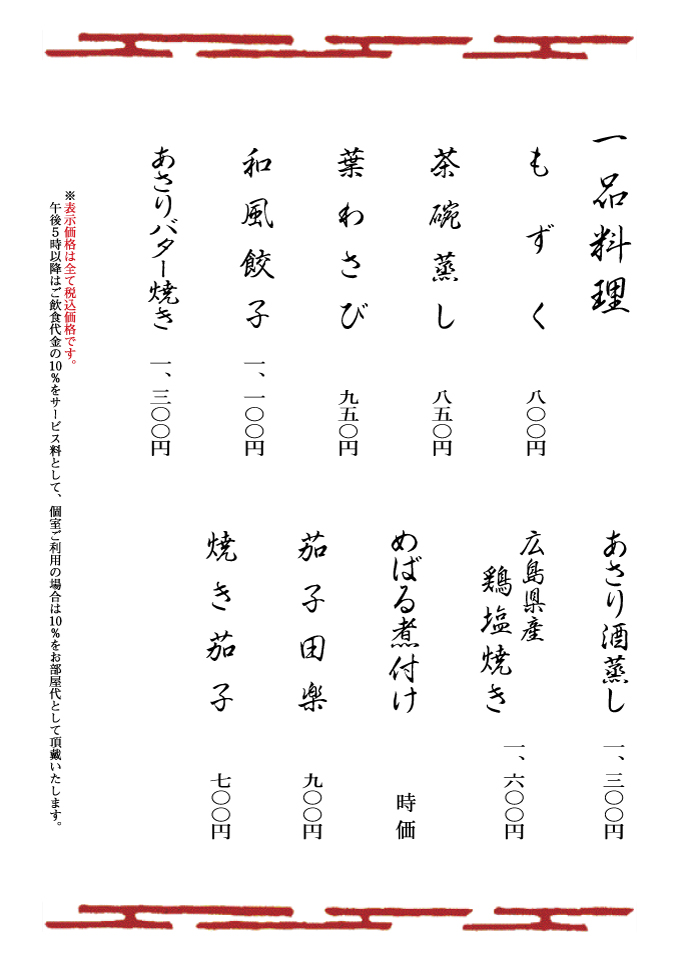 一品料理
もずく 八〇〇円
茶碗蒸し 八五〇円
葉わさび 九五〇円
和風餃子 一、一〇〇円
あさりバター焼き 一、三〇〇円
あさり酒蒸し 一、三〇〇円
広島県産
鶏塩焼き 一、六〇〇円
めばる煮付け 時価
茄子田楽 九〇〇円
焼き茄子 七〇〇円
※表示価格は全て税込価格です。
午後５時以降はご飲食代金の10％をサービス料として、個室ご利用の場合は10％をお部屋代として頂戴いたします。